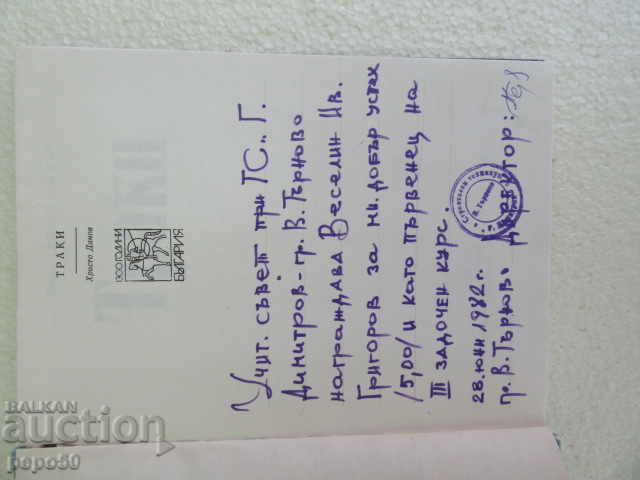 ТРАКИ
Христо Данов
1300 ГОДИНИ
БЪЛГАРИЯ
Учит. съвет при ТС „Г.
Димитров - гр. В. Търново
награждава Веселин Ив.
Григоров за мн. добър успех
/5,00/ и като първенец на
III задочен курс.
28. юни 1982 г.
гр. В. Търново Директор:
Строителен техникум
В. Търново
BALKAN
auction
pepo50